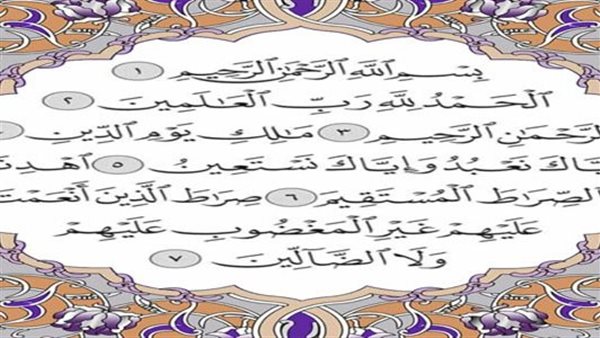 بِسْمِ ٱللَّهِ ٱلرَّحْمَٰنِ ٱلرَّحِيمِ ١
ٱلْحَمْدُ لِلَّهِ رَبِّ ٱلْعَٰلَمِينَ ٢
لرَّحْمَٰنِ ٱلرَّحِيمِ ٣ مَٰلِكِ يَوْمِ ٱلدِّينِ
يَّاكَ نَعْبُدُ وَإِيَّاكَ نَسْتَعِينُ ٥ ٱهْدِنَ
ٱلصِّرَٰطَ ٱلْمُسْتَقِيمَ ٦ صِرَٰطَ ٱلَّذِينَ أَنْعَمْتَ
عَلَيْهِمْ غَيْرِ ٱلْمَغْضُوبِ عَلَيْهِمْ
وَلَا ٱلضَّآلِّينَ ٧